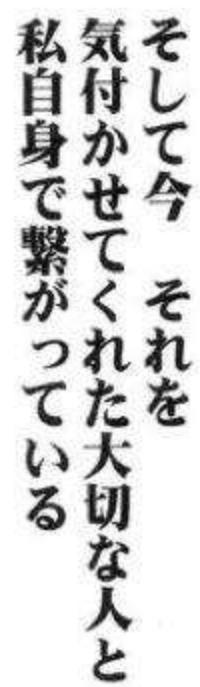 そして今　それを
気付かせてくれた大切な人と
私自身で繋がっている